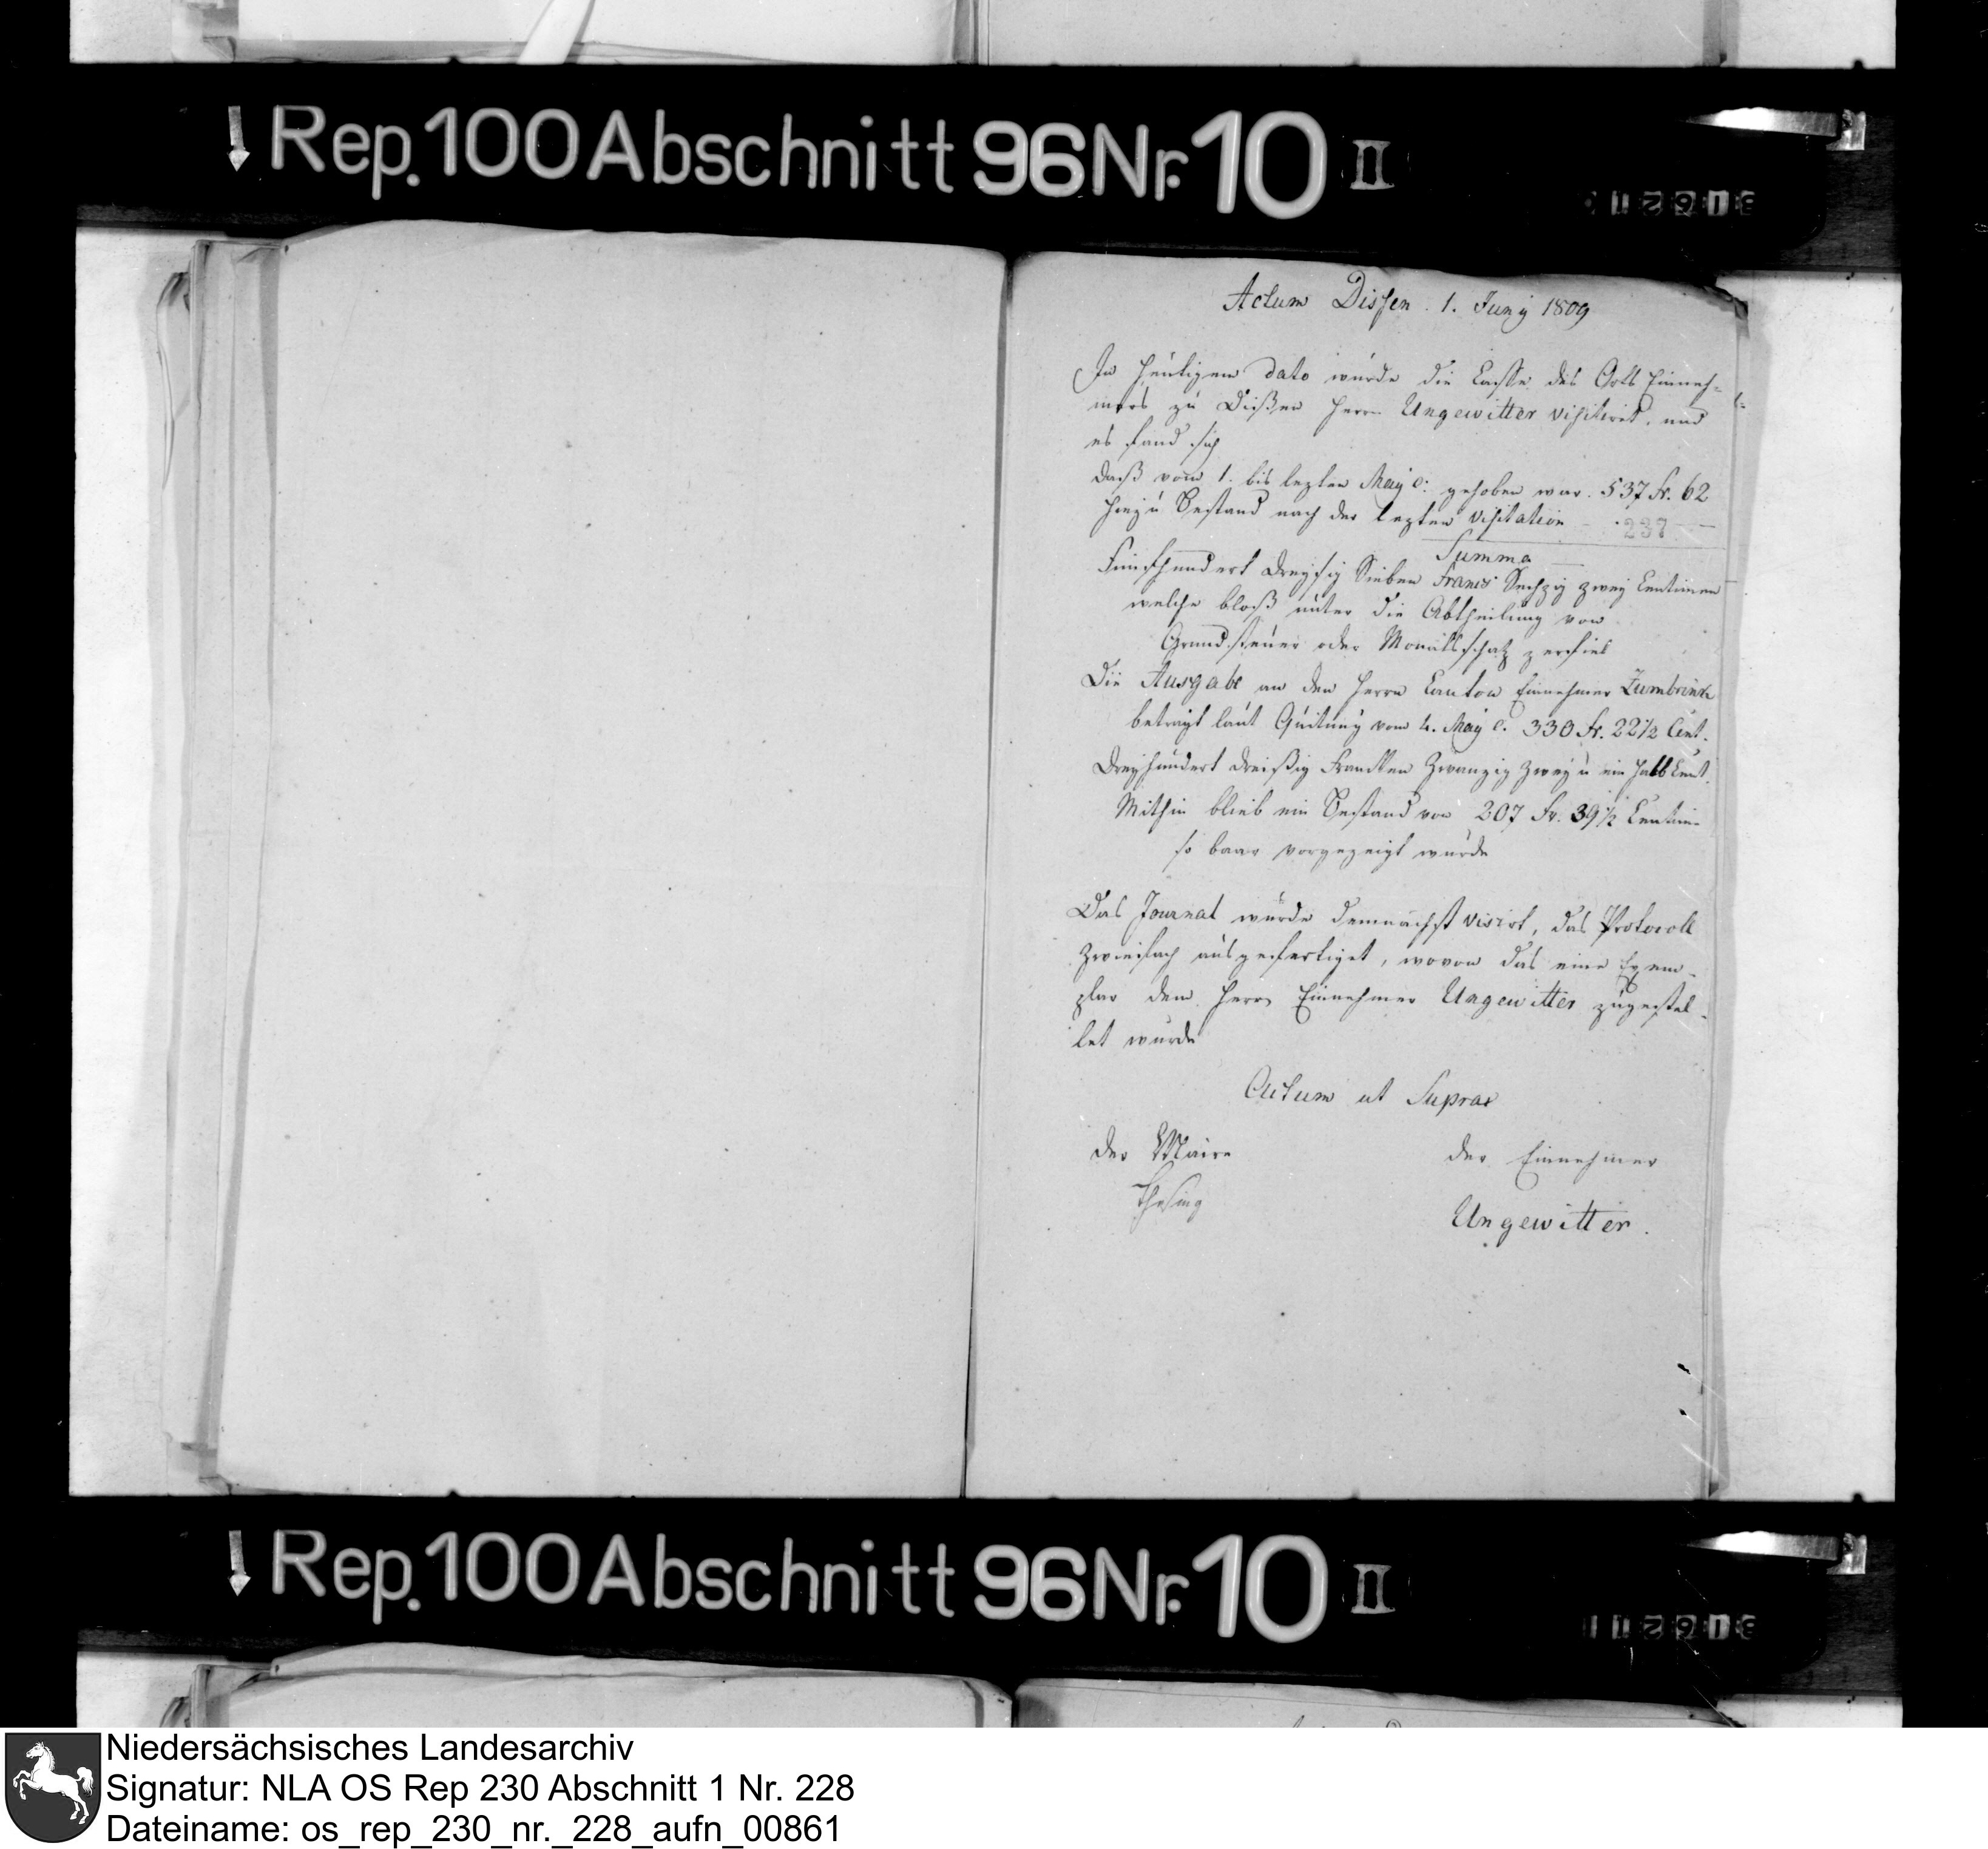 Rep. 100 Abschnitt 96 Nr. 10 II
Actum Dissen. 1. Juny 1809
In heutigem dato wurde die Casse des Orts Einneh=
mers zu Dißen Herrn Ungewitter visitirt, und
es fand sich
daß vom 1. bis lezten May c: gehoben war. 537 fr. 62
hiezu Bestand nach der lezten visitation
Summa
Fünfhundert dreysig Sieben Francs Sechzig zwey Centimen
welche bloß unter die Abtheilung von
Grundsteuer oder Monatsschatz zerfiel
Die Ausgabe an den Herrn Canton Einnehmer Zumbrink
beträgt laut Quitung vom 4. May c. 330 fr. 22 1/2 Cent.
Dreyhundert dreißig Francken Zwanzig Zwey u ein halb Cent.
Mithin blieb ein Bestand von 207 fr. 39 1/2 Centim
so baar vorgezeigt wurde
Das Journal wurde demnächst visirt, das Protocoll
zwiefach ausgefertiget, wovon das eine Exem-
plar dem Herrn Einnehmer Ungewitter zugestel-
let wurde
Actum ut Supra
der Maire
der Einnehmer
Thesing
Ungewitter.
Rep. 100 Abschnitt 96 Nr. 10 II
Niedersächsisches Landesarchiv
Signatur: NLA OS Rep 230 Abschnitt 1 Nr. 228
Dateiname: os_rep_230_nr._228_aufn_00861